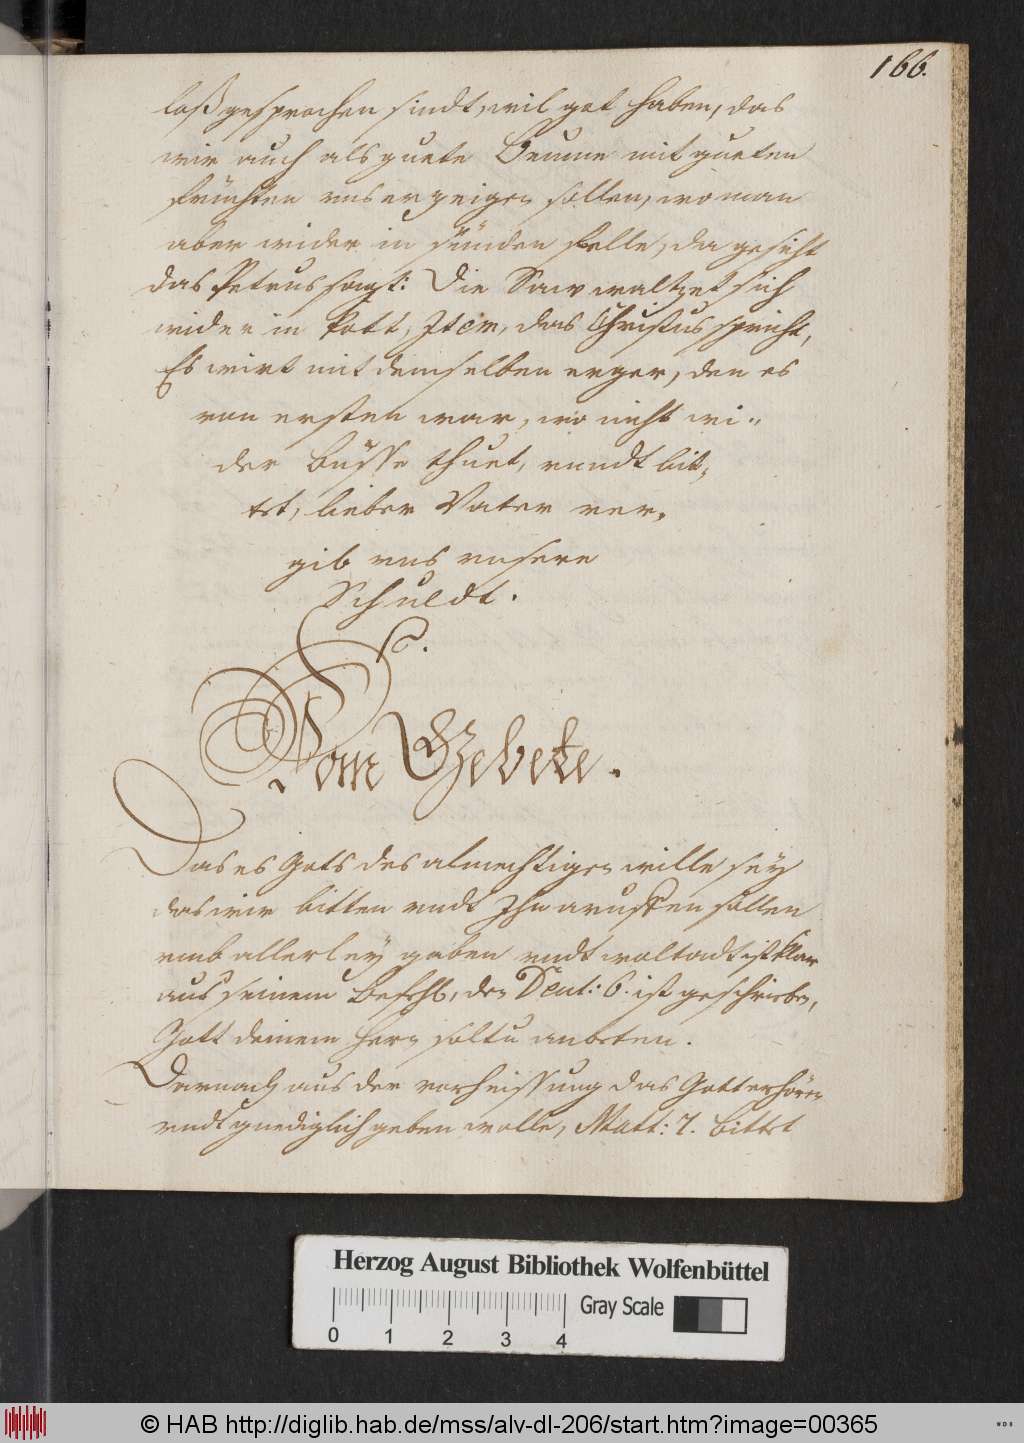 166.
loß gesprochen sindt, wil got haben, das
wir auch als guete Beume mit gueten
früchten uns erzeigen sollen, wo man
aber wider in sünden felle, da gesicht
das Petrus sagt: Die Saw waltzet sich
wider in kott, Item, das Christus spricht,
Es wirt mit demselben erger, den es
von ersten war, wo nicht wi-
der busse thuet, vundt bit-
tet, lieber Vater ver-
gib uns unsere
Schuldt.
Vom Gebete.
Das es Gots des almechtigen wille sey
das wir bitten undt Ihn anruffen sollen
umb allerley gaben undt woltadt ist klar
aus seinem Befehl, den Deut: 6. ist geschrieben,
Gott deinem Hern soltu anbeten.
Darnach aus der verheissung das Gott erhören
undt gnediglich geben wolle, Matt: 7. Bittet
Herzog August Bibliothek Wolfenbüttel
0 1 2 3 4
Gray Scale
© HAB http://diglib.hab.de/mss/alv-dl-206/start.htm?image=00365